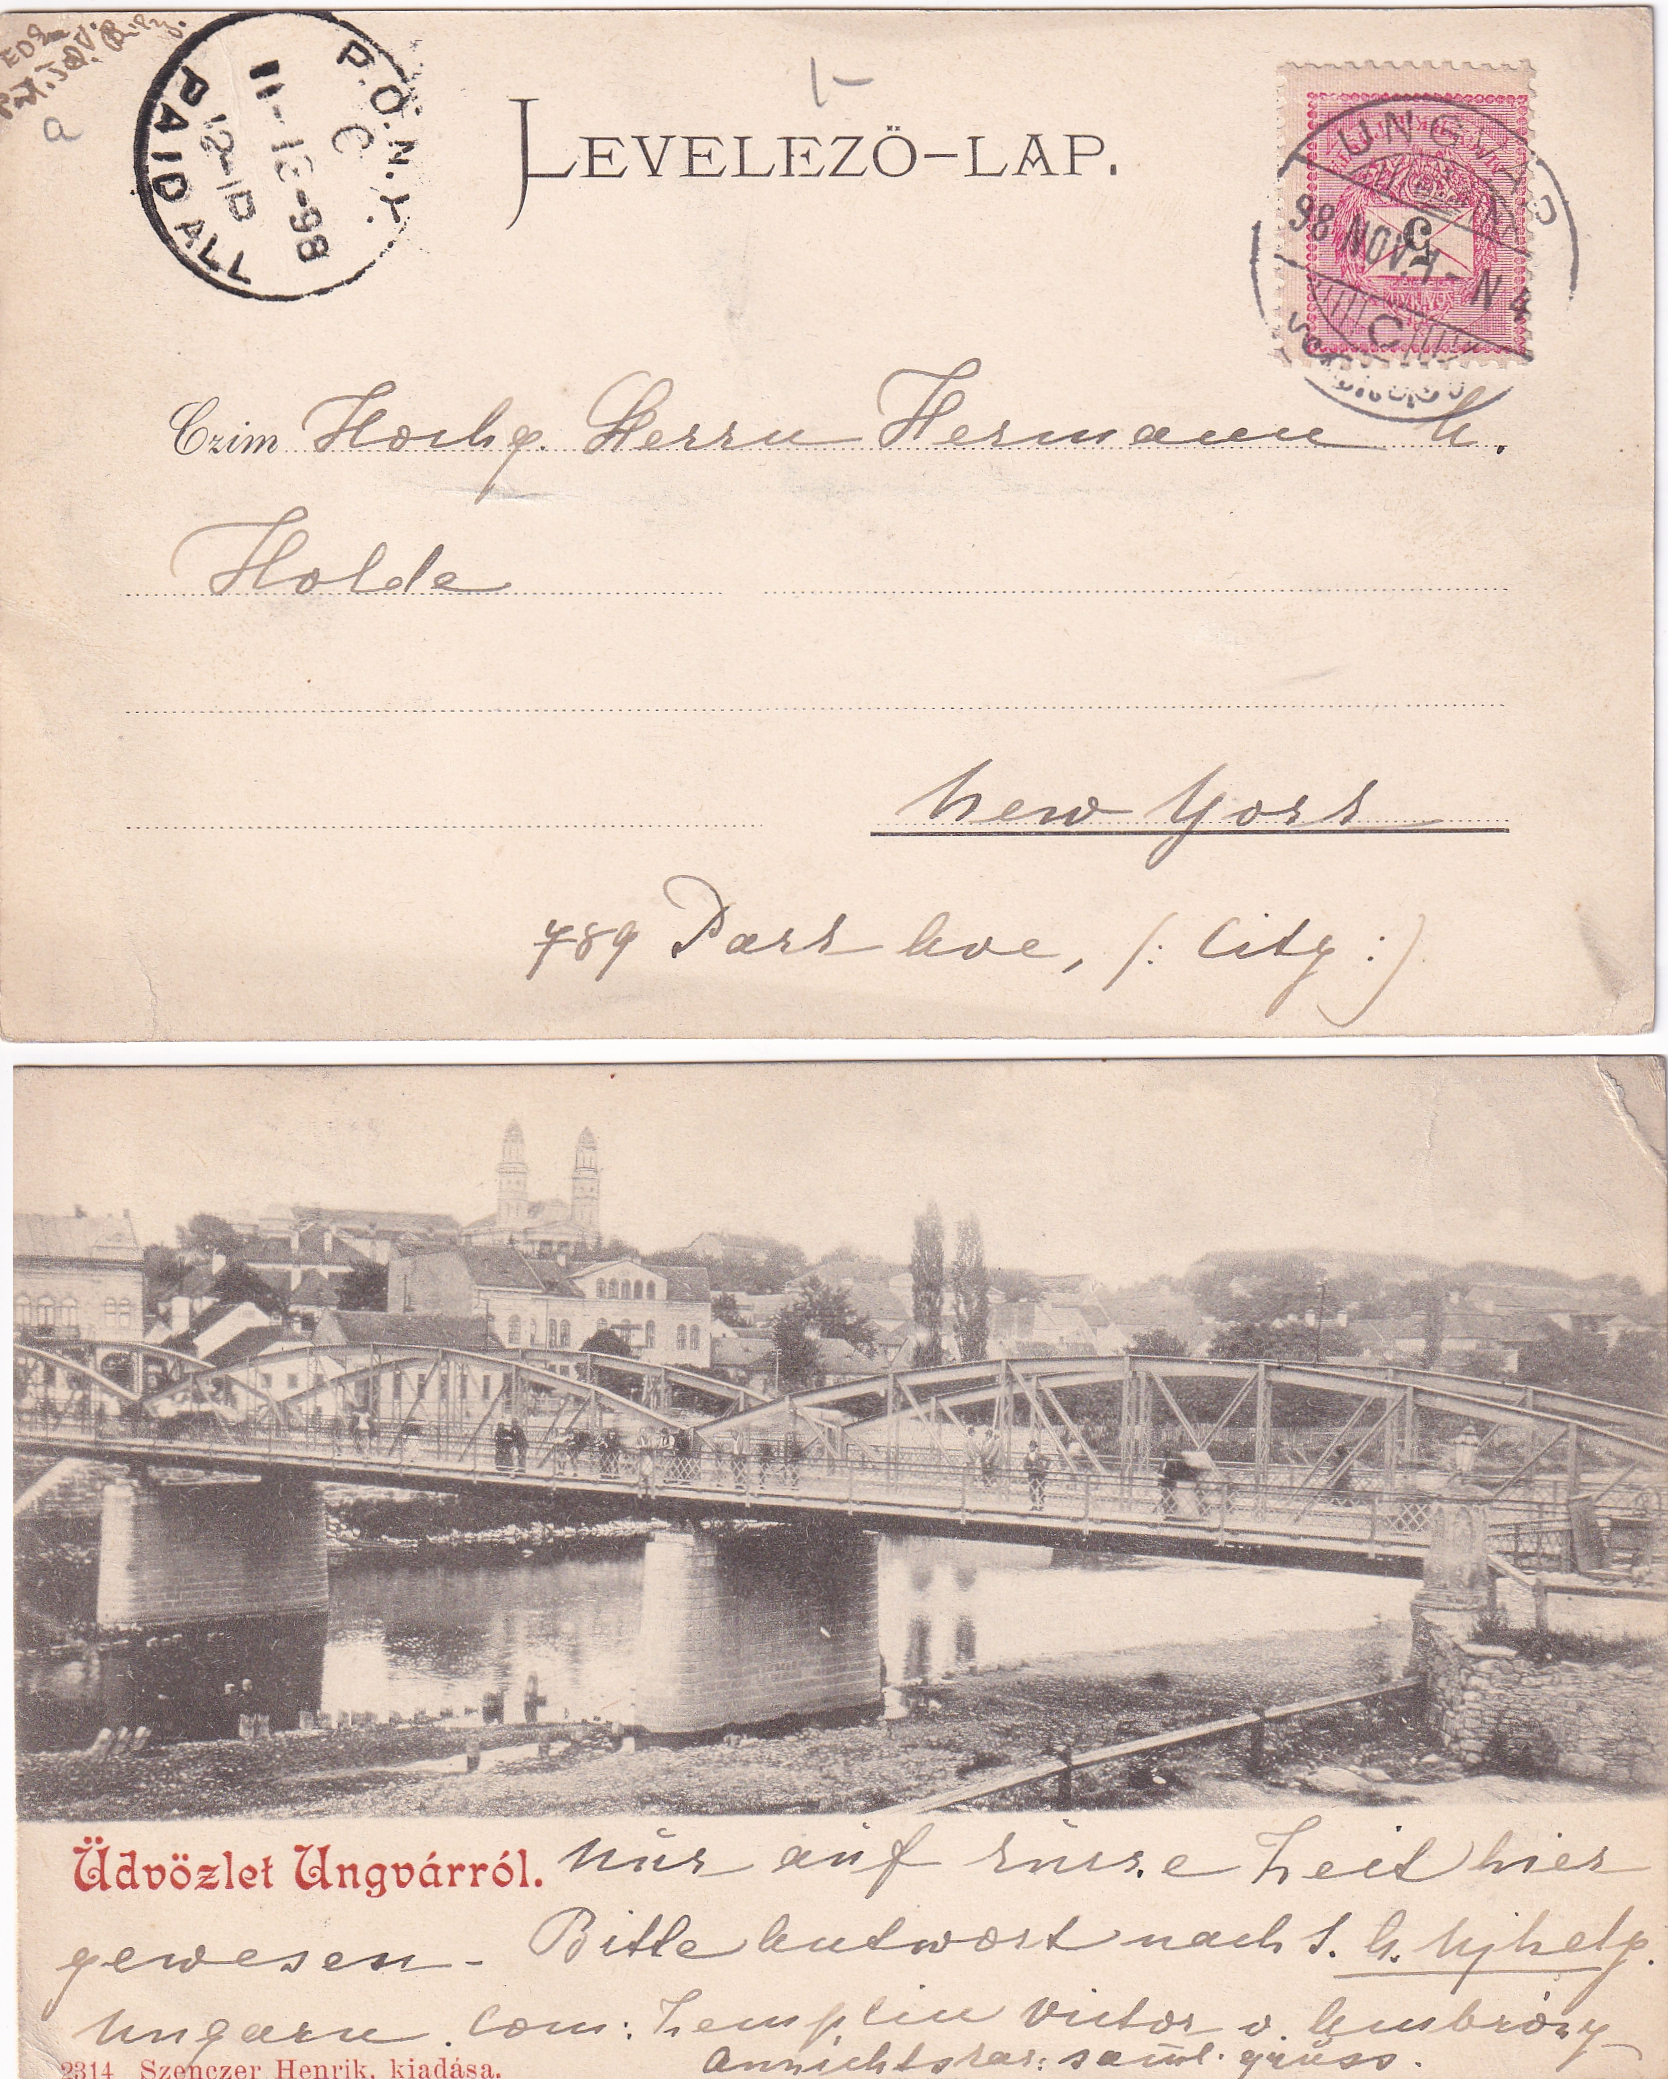 P.O.N.Y.
6
11-13-98
12-1D
PAID ALL
LEVELEZŐ-LAP.
UNGVÁR
98 NOV. 1 - N 4
5
C
Czim Hochg. Herrn Hermann A.
Holde
New York
789 Park Ave, (: City :)
Üdvözlet Ungvárról. Nur auf kurze Zeit hier
gewesen - Bitte Antwort nach S. A. Ujhely.
Ungarn. Com: Zemplin Victor v. Ambrózy
Ansichtskar: saml. gruss.
2314 Szenczer Henrik, kiadása.